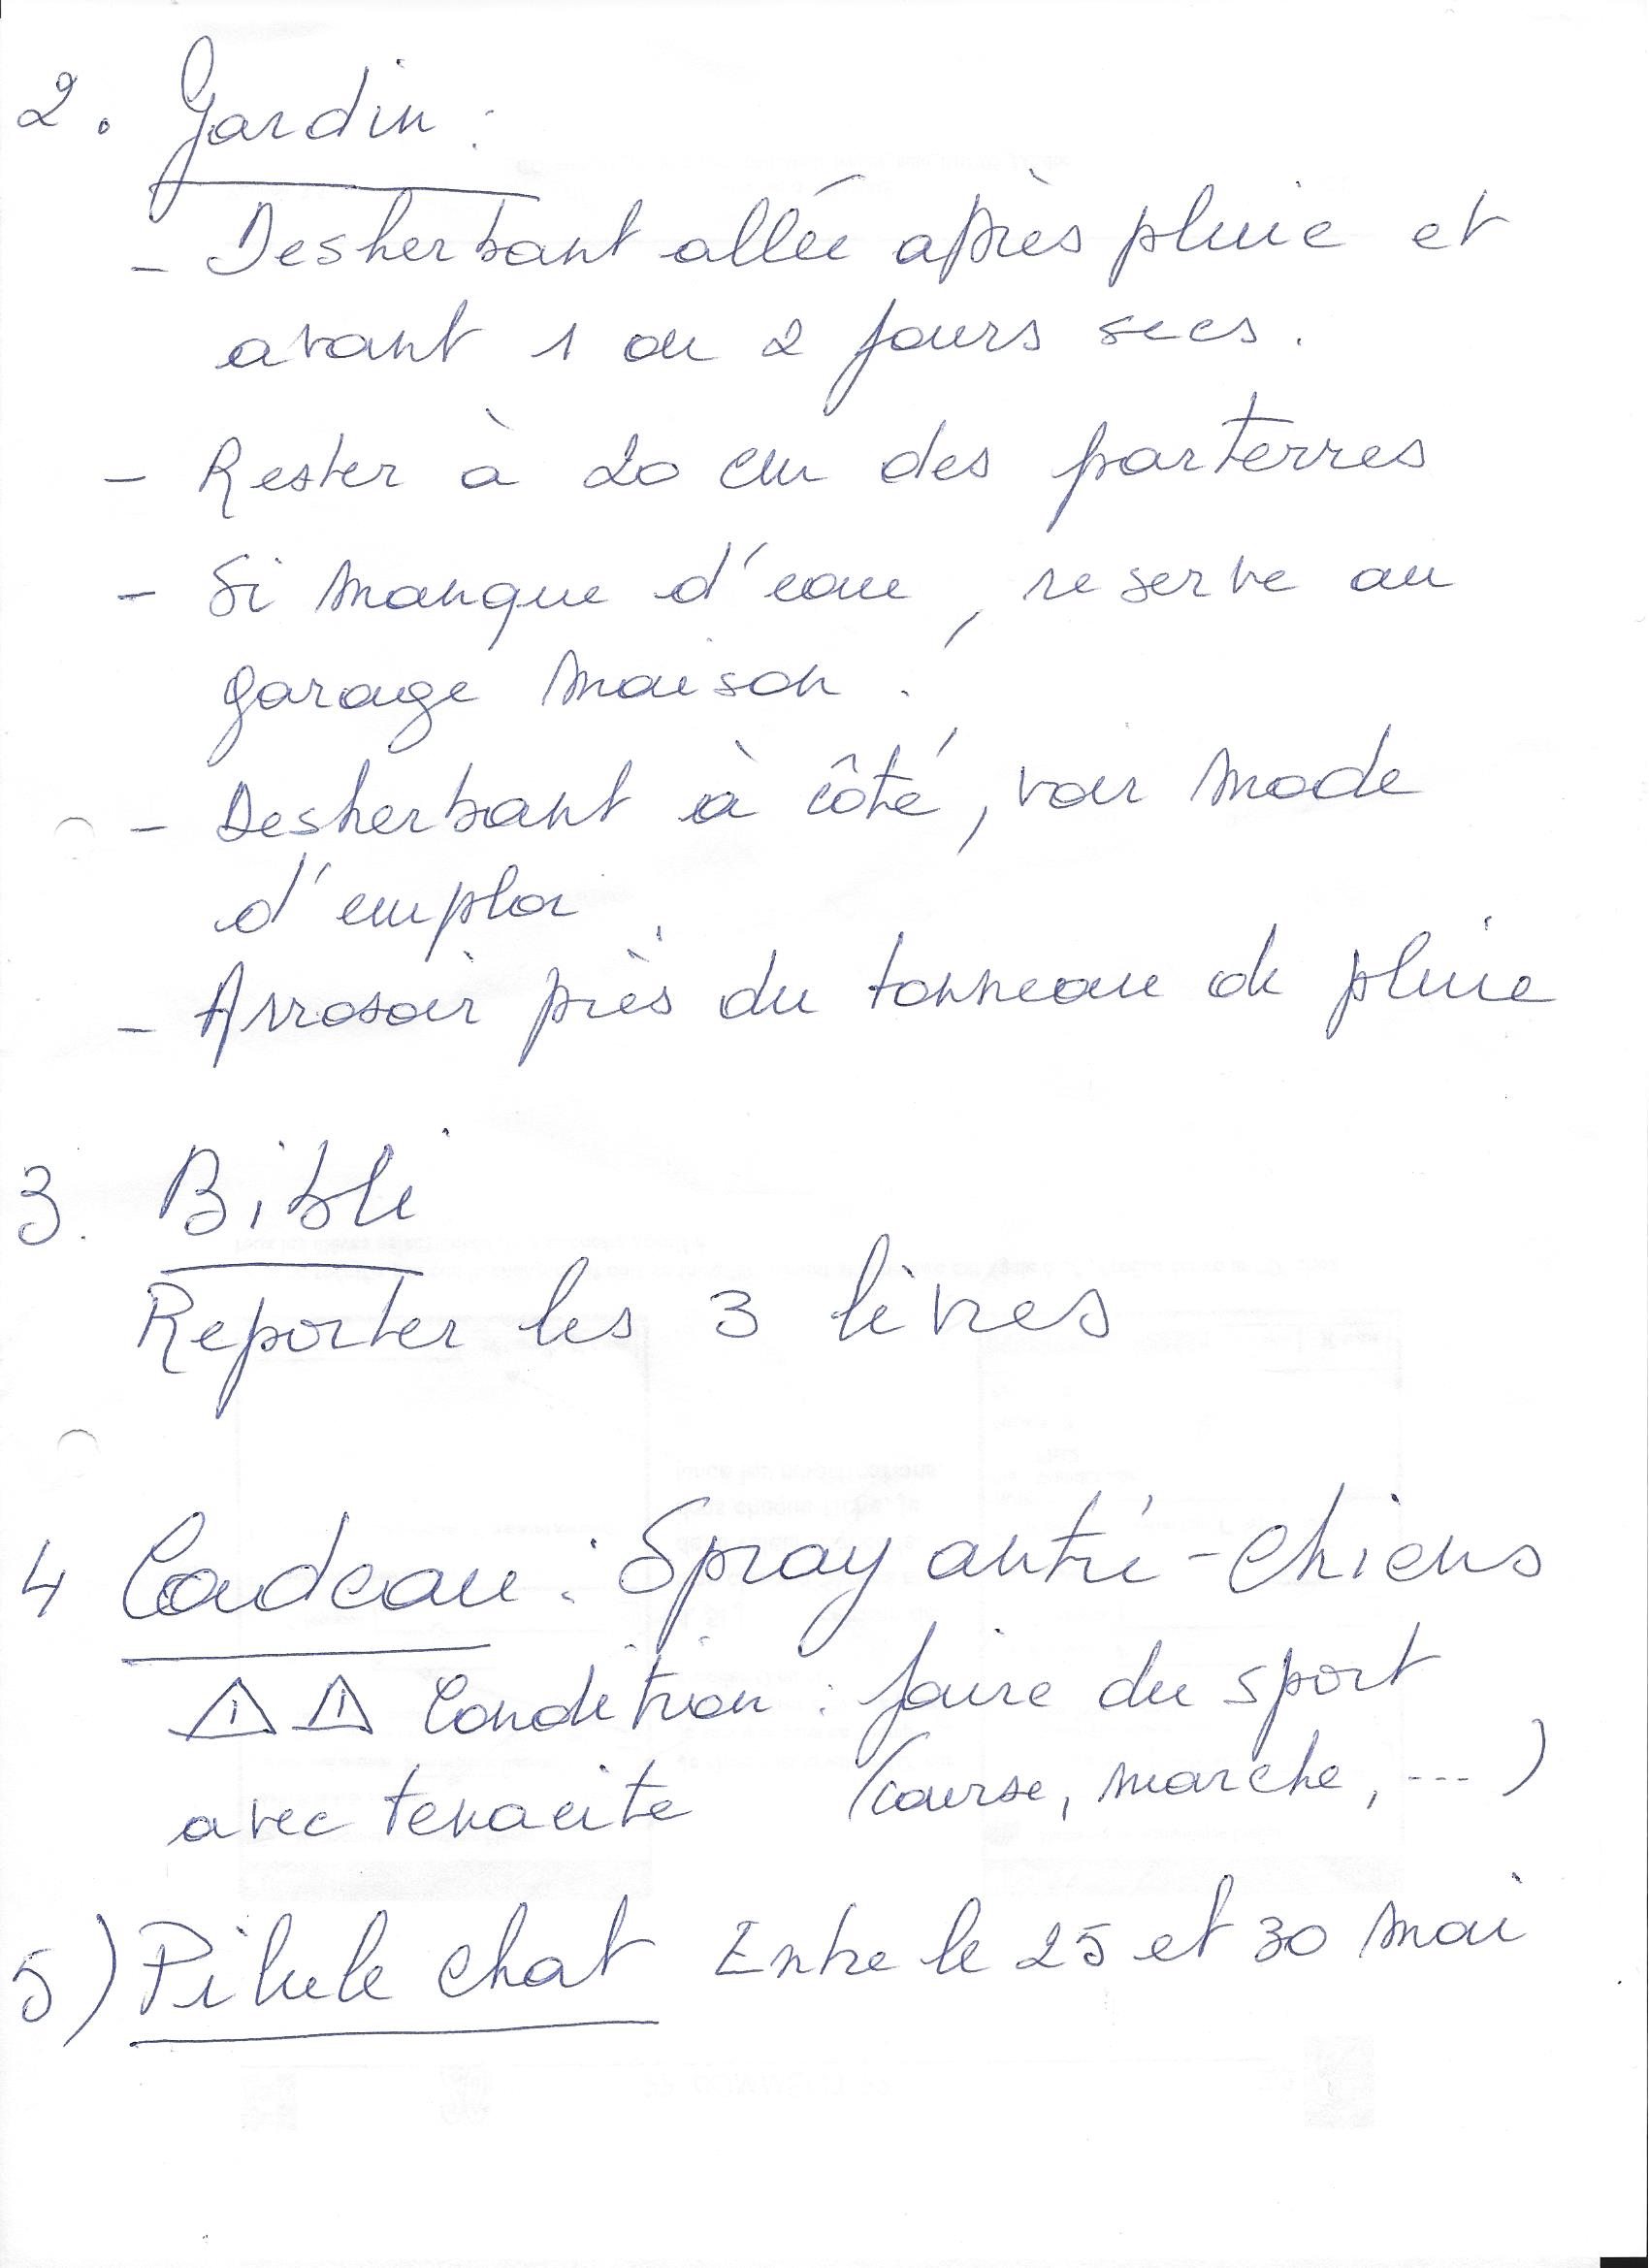 2. Jardin :
- Desherbant allée après pluie et
avant 1 ou 2 jours secs.
- Rester à 20 cm des parterres
- Si manque d'eau, reserve au
garage maison.
- Desherbant à côté, voir mode
d'emploi
- Arrosoir près du tonneau de pluie
3. Bibli
Reporter les 3 livres
4 Cadeau : Spray anti-chiens
⚠ ⚠ Condition : faire du sport
avec tenacite (course, marche, ...)
5) Pilule chat Entre le 25 et 30 mai